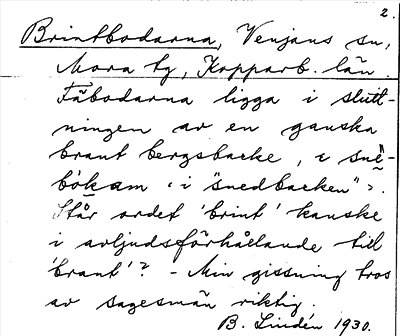 2.
Brintbodarna, Venjans sn,
Mora tg, Kopparb. län.
Fäbodarna ligga i slutt-
ningen av en ganska
brant bergsbacke, i snē͔-
bo͔kam "i "snedbacken".
Står ordet 'brint' kanske
i avljudsförhållande till
'brant'? - Min gissning tros
av sagesmän riktig.
B. Lindén 1930.